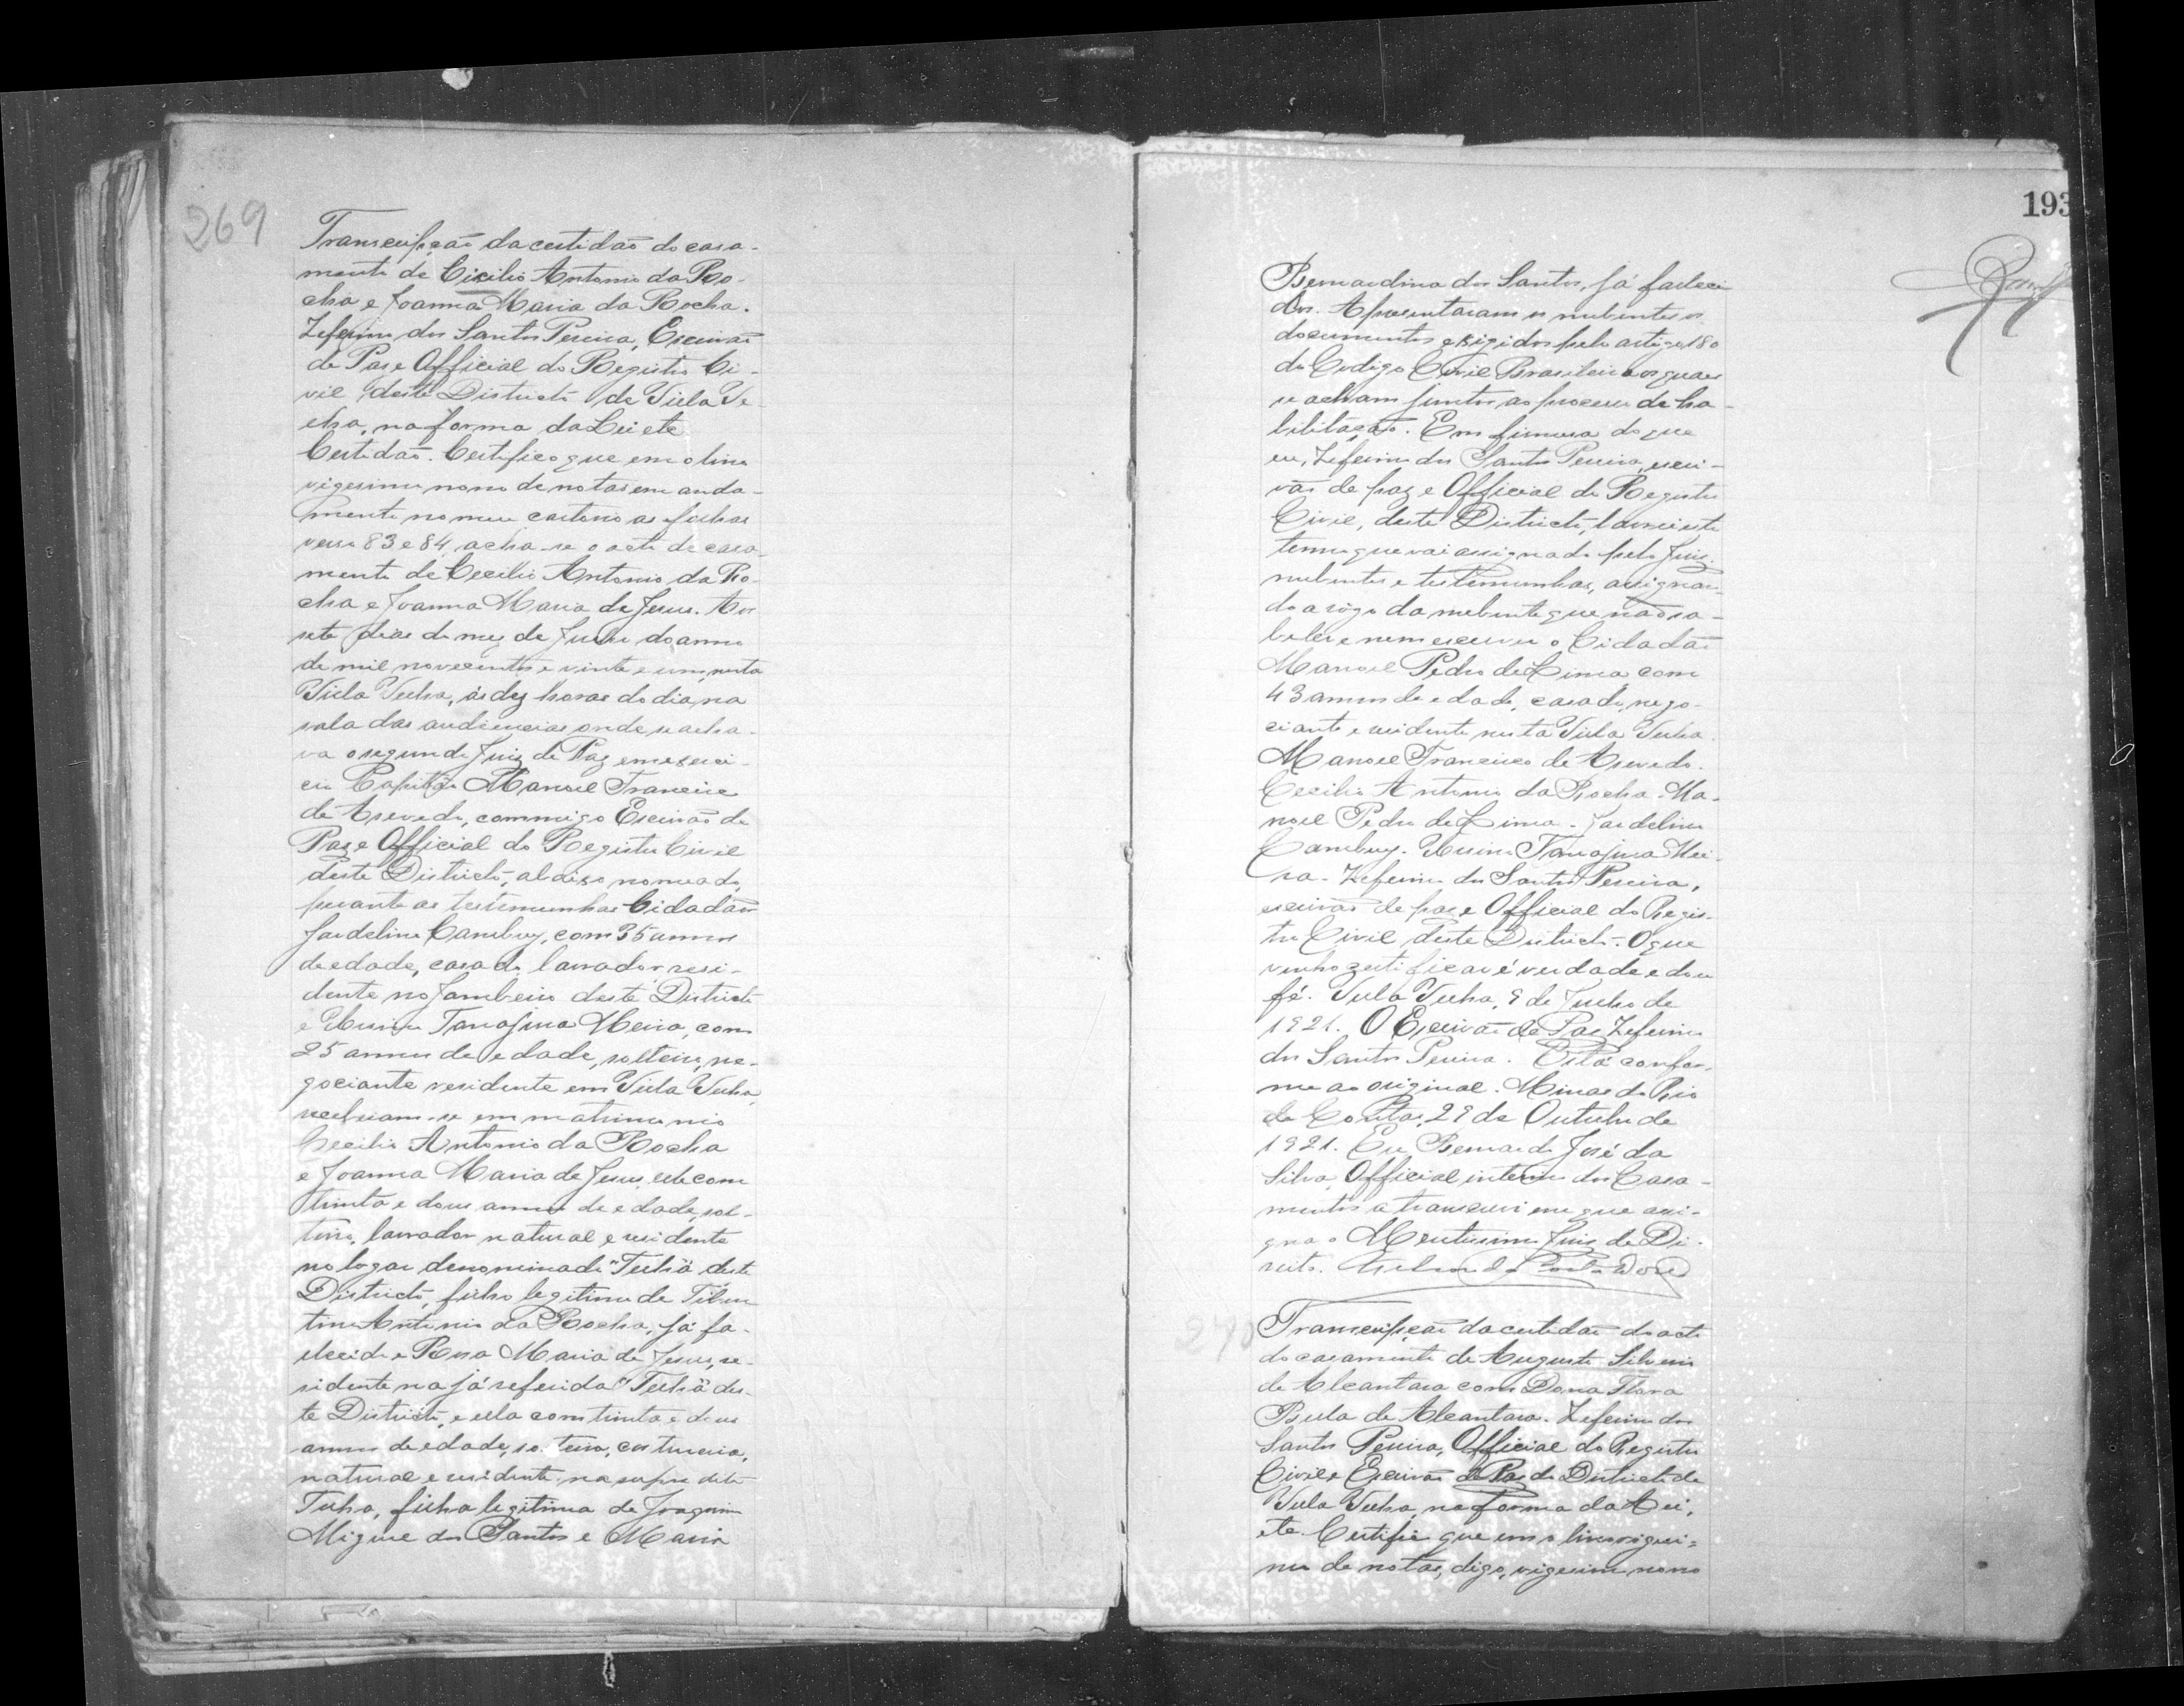 269
Transcripção da certidão do casa-
mento de Cicilio Antonio da Ro-
cha e Joanna Maria da Rocha.
Zeferino dos Santos Pereira, Escrivão
de Paz e Official do Registro Ci-
vil deste Districto de Villa Ve-
lha, na forma da Lei etc
Certidão. Certifico que em o livro
vigesimo nono de notas em anda-
mento no meu cartorio as folhas
verso 83 e 84, acha-se o acto de casa-
mento de Cecilio Antonio da Ro-
cha e Joanna Maria de Jesus. Aos
sete dias do mez de Julho do anno
de mil novecentos e vinte e um, nesta
Villa Velha, ás dez horas do dia, na
sala das audiencias onde se acha-
va o segundo Juiz de Paz em exerci-
cio Capitão Manoel Francisco
de Azevedo, commigo Escrivão de
Paz e Official do Registro Civil
deste Districto, abaixo nomeado,
perante as testemunhas Cidadãos
Jardelino Cambuy, com 35 annos
de edade, casado, lavrador resi-
dente no Jambeiro deste Districto
e Tanajura Meira, com
25 annos de edade, solteiro, ne-
gociante residente em Villa Velha,
receberam-se em matrimonio
Cecilio Antonio da Rocha
e Joanna Maria de Jesus, elle com
trinta e dous annos de edade, sol-
teiro, lavrador natural e residente
no logar denominado "Telha" deste
Districto, filho legitimo de Tibur-
tino Antonio da Rocha, já fa-
lecido e Rosa Maria de Jesus, re-
sidente na já referida "Telha" des-
te Districto, e ella com trinta e dous
annos de edade, solteira, costureira,
natural e residente na supra dita
Telha, filha legitima de Joaquim
Miguel dos Santos e Maria
193
Bernardina dos Santos, já faleci
dos. Apresentaram os nubentes os
documentos exigidos pelo artigo 180
do Codigo Civil Brasileiro os quaes
se acham juntos ao processo de ha-
bilitação. Em firmeza do que
eu, Zeferino dos Santos Pereira, escri-
vão de paz e Official do Registro
Civil, deste Districto, lavrei este
termo que vai assignado pelo Juiz,
nubentes e testemunhas, assignan-
do a rogo da nubente que não sa-
be ler e nem escrever o Cidadão
Manoel Pedro de Lima com
43 annos de edade, casado, nego-
ciante e residente nesta Villa Velha.
Manoel Francisco de Azevedo.
Cecilio Antonio da Rocha. Ma-
noel Pedro de Lima. Jardelino
Cambuy. Tanajura Mei-
ra. Zeferino dos Santos Pereira,
escrivão de paz e Official do Regis-
tro Civil deste Districto. O que
venho certificar é verdade e dou
fé. Villa Velha, 9 de Julho de
1921. O Escrivão de Paz Zeferino
dos Santos Pereira. Está confor-
me ao original. Minas do Rio
de Contas, 29 de Outubro de
1921. Eu Bernardo José da
Silva, Official interino dos Casa-
mentos a transcrevi em que assi-
gna o Meritissimo Juiz de Di-
reito.
270
Transcripção da certidão do acto
do casamento de Augusto Silverio
de Alcantara com Dona Flora
Bella de Alcantara. Zeferino dos
Santos Pereira, Official do Registro
Civil e Escrivão de Paz do Districto de
Villa Velha, na forma da Lei,
etc. Certifico que em o livro vigesi=
mo de notas, digo, vigesimo nono